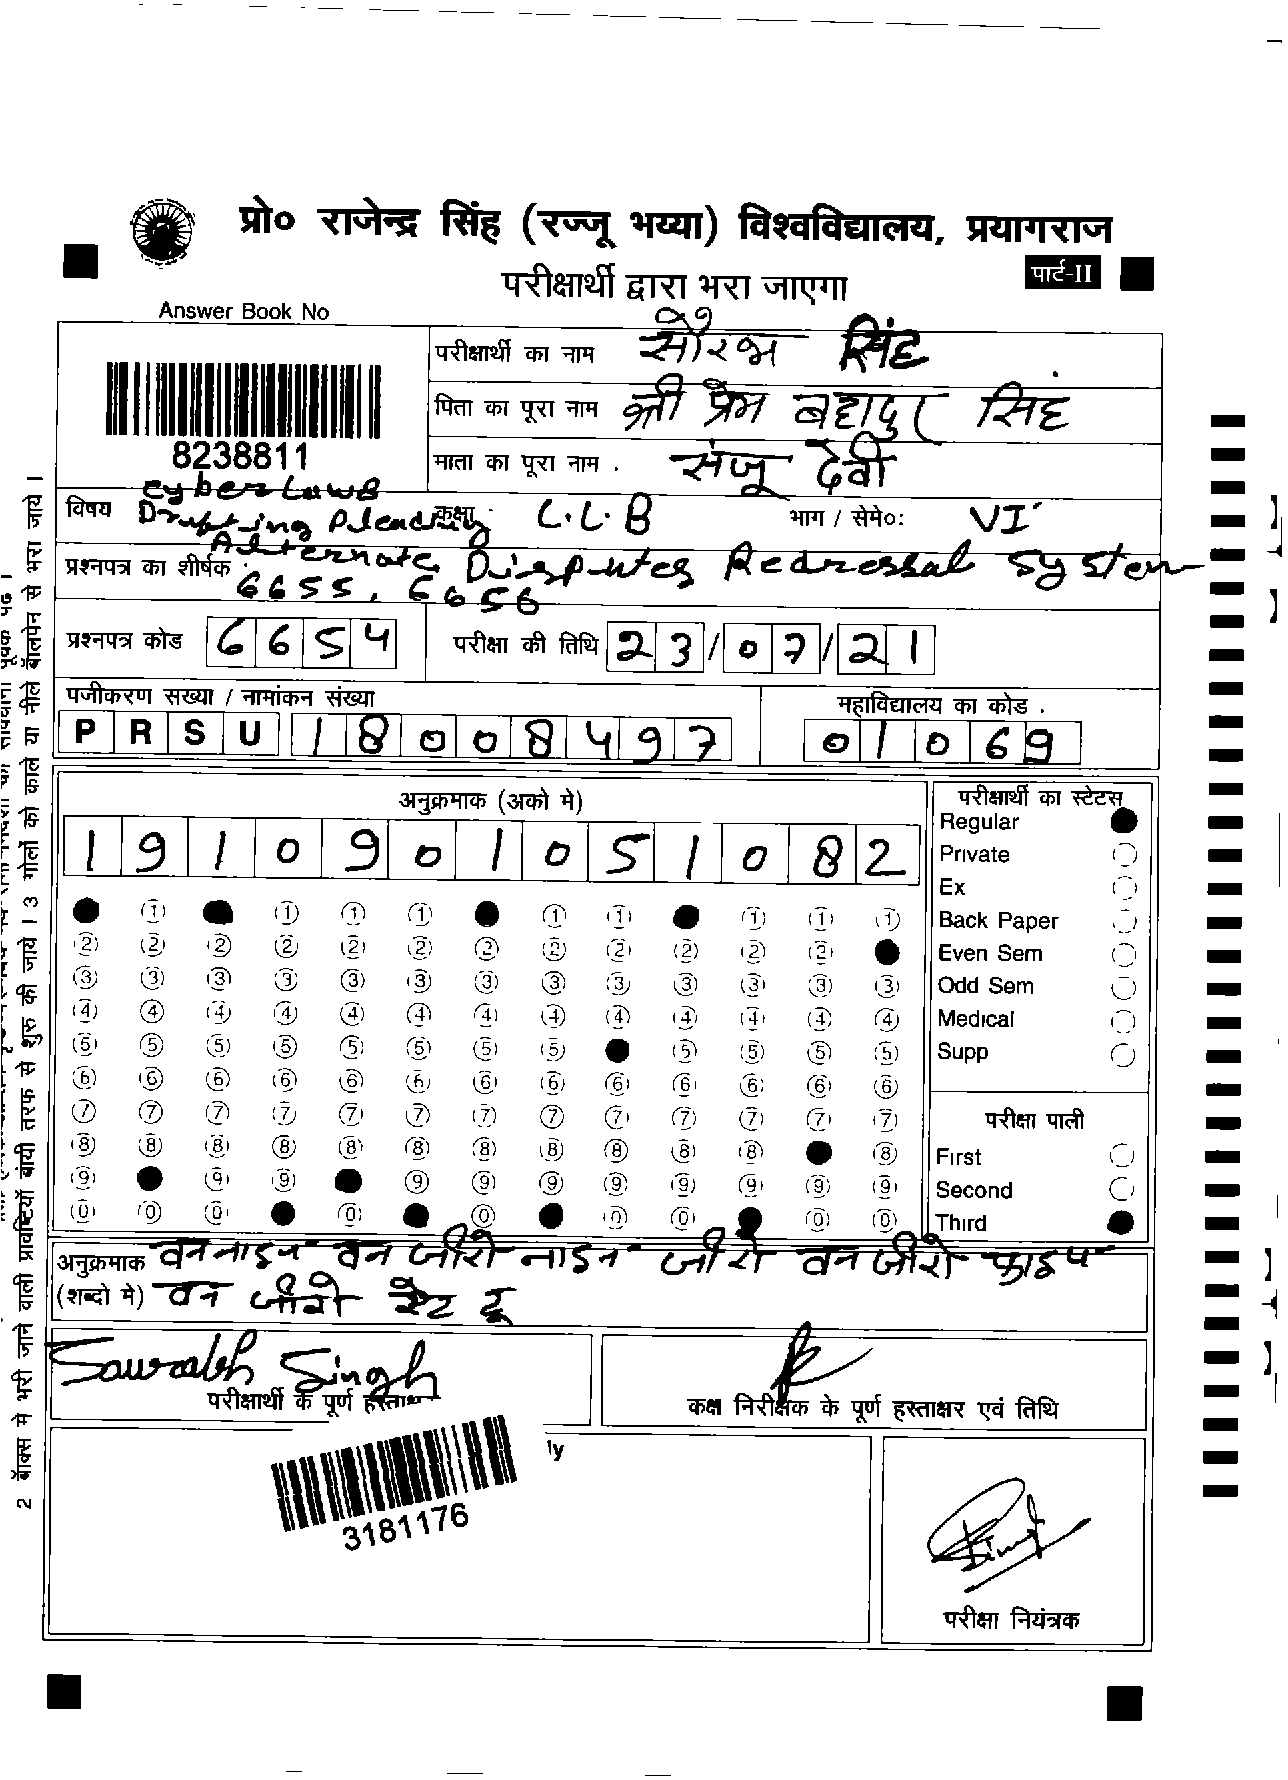 प्रो० राजेन्द्र सिंह (रज्जू भय्या) विश्वविद्यालय, प्रयागराज
परीक्षार्थी द्वारा भरा जाएगा
पार्ट-II
Answer Book No
8238811
परीक्षार्थी का नाम सौरभ सिंह
पिता का पूरा नाम श्री प्रेम बहादुर सिंह
माता का पूरा नाम . संजू देवी
विषय Cyber Laws
Drafting Pleading
कक्षा L.L.B भाग / सेमे०: VI
प्रश्नपत्र का शीर्षक Alternate Disputes Redressal System
6655, 6656
प्रश्नपत्र कोड 6654 परीक्षा की तिथि 23/07/21
पजीकरण सख्या / नामांकन संख्या
PRSU18008497
महाविद्यालय का कोड .
01069
अनुक्रमाक (अको मे)
1 9 1 0 9 0 1 0 5 1 0 8 2
1 1 1 1 1 1 1 1 1
2 2 2 2 2 2 2 2 2 2 2 2
3 3 3 3 3 3 3 3 3 3 3 3 3
4 4 4 4 4 4 4 4 4 4 4 4 4
5 5 5 5 5 5 5 5 5 5 5 5
6 6 6 6 6 6 6 6 6 6 6 6 6
7 7 7 7 7 7 7 7 7 7 7 7 7
8 8 8 8 8 8 8 8 8 8 8 8
9 9 9 9 9 9 9 9 9 9 9
0 0 0 0 0 0 0 0 0
परीक्षार्थी का स्टेटस
Regular
Private
Ex
Back Paper
Even Sem
Odd Sem
Medical
Supp
परीक्षा पाली
First
Second
Third
अनुक्रमाक वन नाइन वन जीरो नाइन जीरो वन जीरो फाइव
(शब्दो मे) वन जीरो ऐट टू
Saurabh Singh
परीक्षार्थी के पूर्ण हस्ताक्ष
कक्ष निरीक्षक के पूर्ण हस्ताक्षर एवं तिथि
ly
3181176
परीक्षा नियंत्रक
2 बॉक्स मे भरी जाने वाली प्रविष्टियॉ बांयी तरफ से शुरु की जाये । 3 गोलों को काले या नीले बॉलपेन से भरा जाये ।